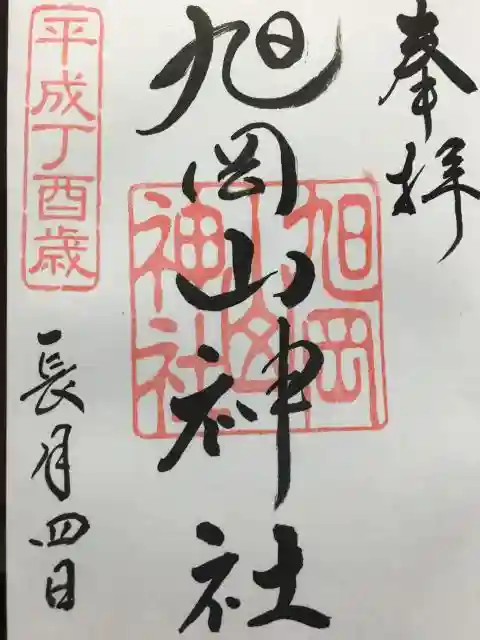 奉拝
旭岡山神社
旭岡山神社
平成丁酉歳
長月四日